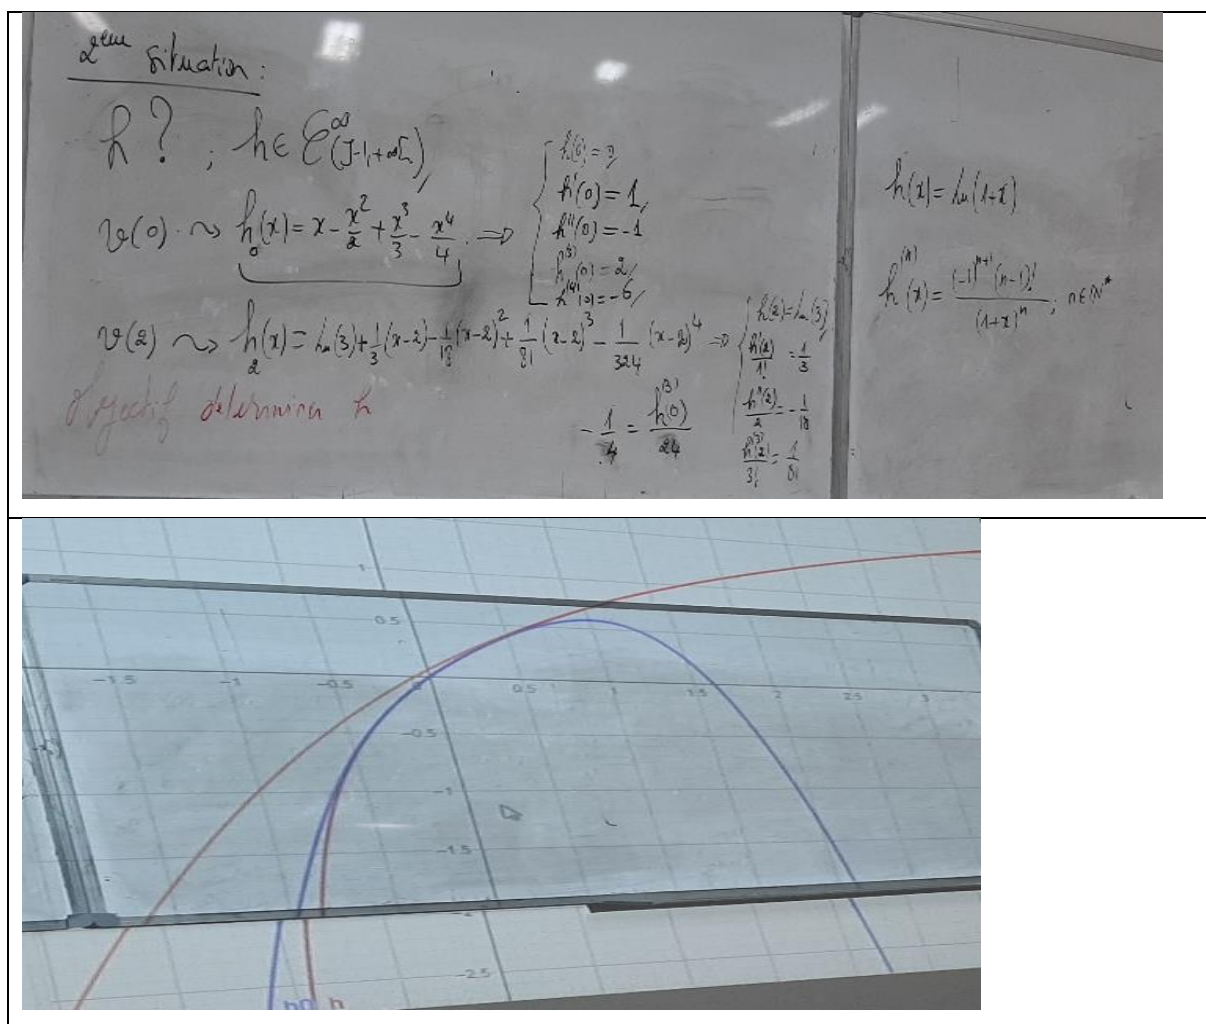 2ème situation :
h ? , h ∈ C^∞ (]-1, +∞[),
v(0) ⤳ h₀(x) = x - x²/2 + x³/3 - x⁴/4 ⇒
h(0) = 0,
h'(0) = 1,
h''(0) = -1
h⁽³⁾(0) = 2,
h⁽⁴⁾(0) = -6,
v(2) ⤳ h₂(x) = ln(3) + 1/3 (x-2) - 1/18 (x-2)² + 1/81 (x-2)³ - 1/324 (x-2)⁴ ⇒
h(2) = ln(3)
h'(2)/1! = 1/3
h''(2)/2 = -1/18
h⁽³⁾(2)/3! = 1/81
Objectif determiner h
-1/4 = h⁽³⁾(0)/24
h(x) = ln(1+x)
h⁽ⁿ⁾(x) = (-1)ⁿ⁺¹ (n-1)! / (1+x)ⁿ ; n ∈ ℕ*
1
0.5
-1.5 -1 -0.5 0 0.5 1 1.5 2 2.5 3
-0.5
-1
-1.5
-2
-2.5
h0 h